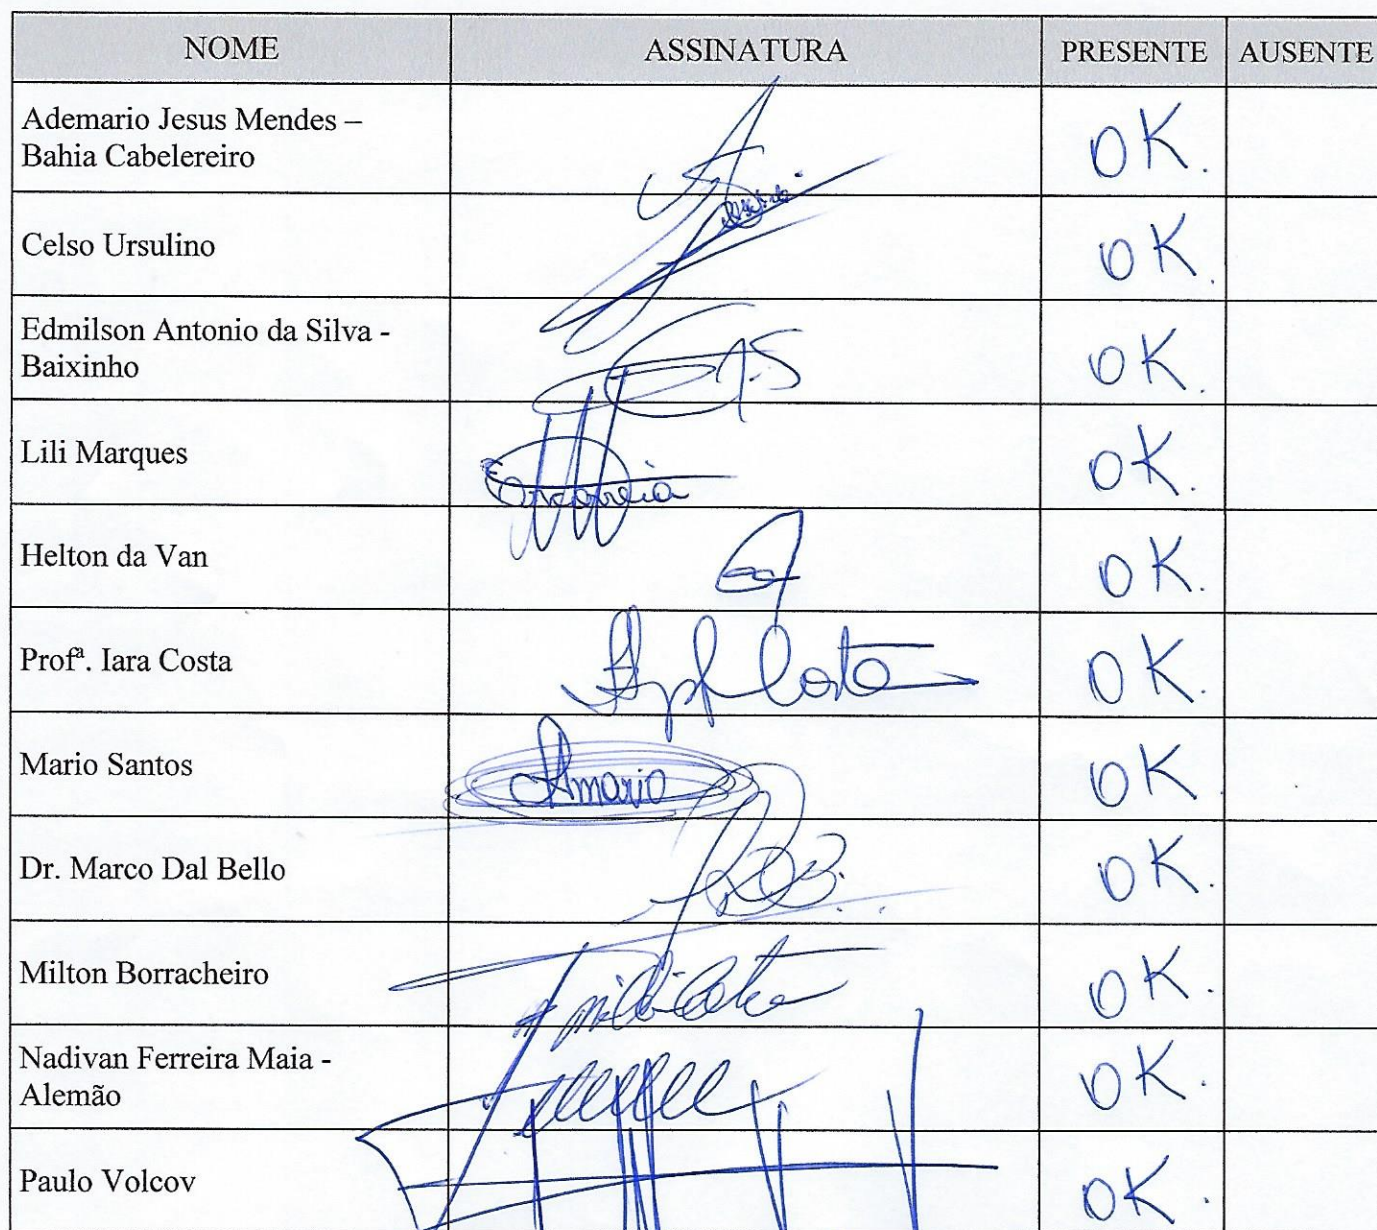 NOME ASSINATURA PRESENTE AUSENTE
Ademario Jesus Mendes –
Bahia Cabelereiro
OK.
Celso Ursulino OK.
Edmilson Antonio da Silva -
Baixinho
OK.
Lili Marques OK.
Helton da Van OK.
Profª. Iara Costa Costa OK.
Mario Santos Amario OK.
Dr. Marco Dal Bello OK.
Milton Borracheiro OK.
Nadivan Ferreira Maia -
Alemão
OK.
Paulo Volcov OK.